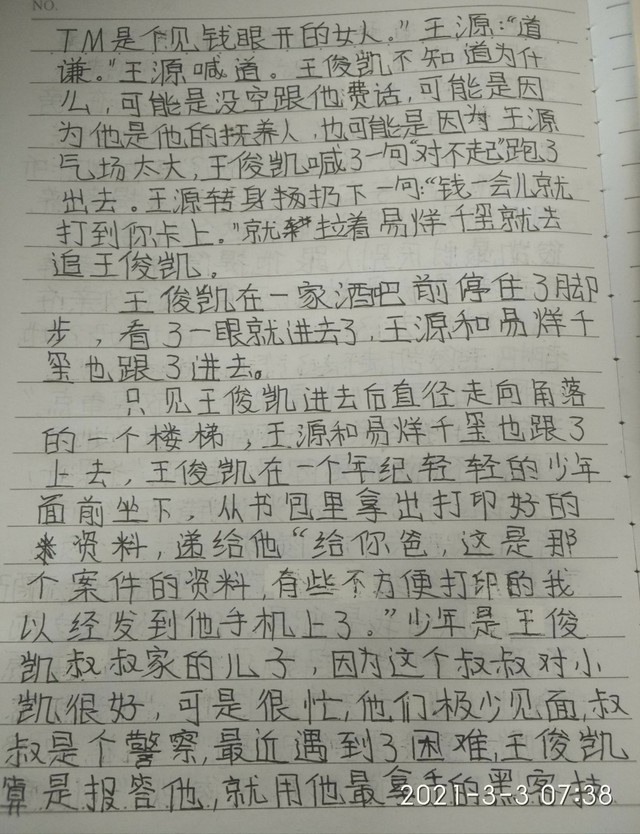 NO.
TM是个见钱眼开的女人。”王源：“道
谦。”王源喊道。王俊凯不知道为什
么，可能是没空跟他费话，可能是因
为他是他的抚养人，也可能是因为王源
气场太大，王俊凯喊了一句“对不起”跑了
出去。王源转身扬扔下一句：“钱一会儿就
打到你卡上。”就拉着易烊千玺就去
追王俊凯。
王俊凯在一家酒吧前停住了脚
步，看了一眼就进去了，王源和易烊千
玺也跟了进去。
只见王俊凯进去后直径走向角落
的一个楼梯，王源和易烊千玺也跟了
上去，王俊凯在一个年纪轻轻的少年
面前坐下，从书包里拿出打印好的
资料，递给他“给你爸，这是那
个案件的资料，有些不方便打印的我
以经发到他手机上了。”少年是王俊
凯叔叔家的儿子，因为这个叔叔对小
凯很好，可是很忙，他们极少见面，叔
叔是个警察，最近遇到了困难，王俊凯
算是报答他，就用他最拿手的黑客技
2021-3-3 07:38